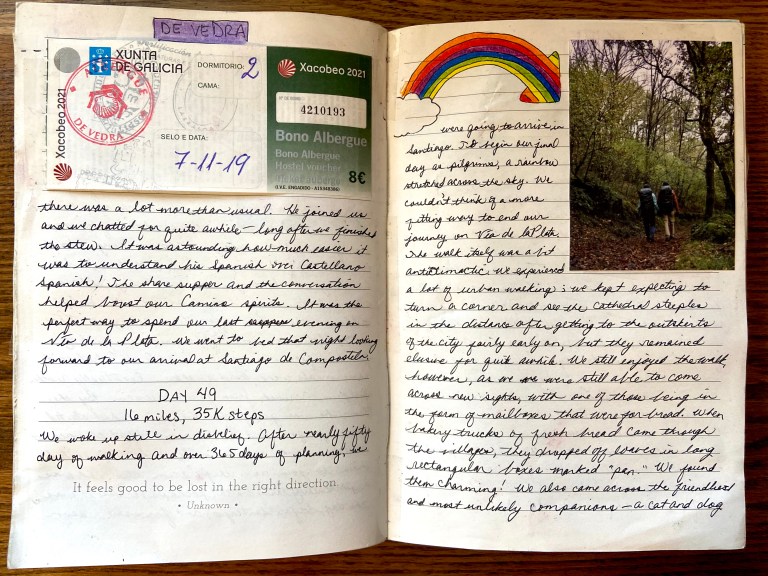 DE VEDRA
XUNTA
DE GALICIA
Xacobeo 2021
DORMITORIO: 2
CAMA:
SELO E DATA:
7-11-19
DE VEDRA
Xacobeo 2021
4210193
Bono Albergue
Bono Albergue
Hostel voucher
8€
there was a lot more than usual. He joined us
and we chatted for quite awhile - long after we finished
the stew. It was astounding how much easier it
was to understand his Spanish over Castellano
Spanish! The share supper and the conversation
helped boost our Camino spirits. It was the
perfect way to spend our last evening on
Vía de la Plata. We went to bed that night looking
forward to our arrival at Santiago de Compostela.
DAY 49
16 miles, 35K steps
We woke up still in disbelief. After nearly fifty
day of walking and over 365 days of planning, we
It feels good to be lost in the right direction
• Unknown •
were going to arrive in
Santiago. To begin our final
day as pilgrims, a rainbow
stretched across the sky. We
couldn't think of a more
fitting way to end our
journey on Vía de la Plata.
The walk itself was a bit
anticlimatic. We experienced
a lot of urban walking; we kept expecting to
turn a corner and see the Cathedral steeples
in the distance after getting to the outskirts
of the city fairly early on, but they remained
elusive for quite awhile. We still enjoyed the walk,
however, as we were still able to come
across new sights, with one of those being in
the form of mailboxes that were for bread. When
bakery trucks of fresh bread came through
the villages, they dropped off loaves in long
rectangular boxes marked "pan." We found
them charming! We also came across the friendliest
and most unlikely companions - a cat and dog